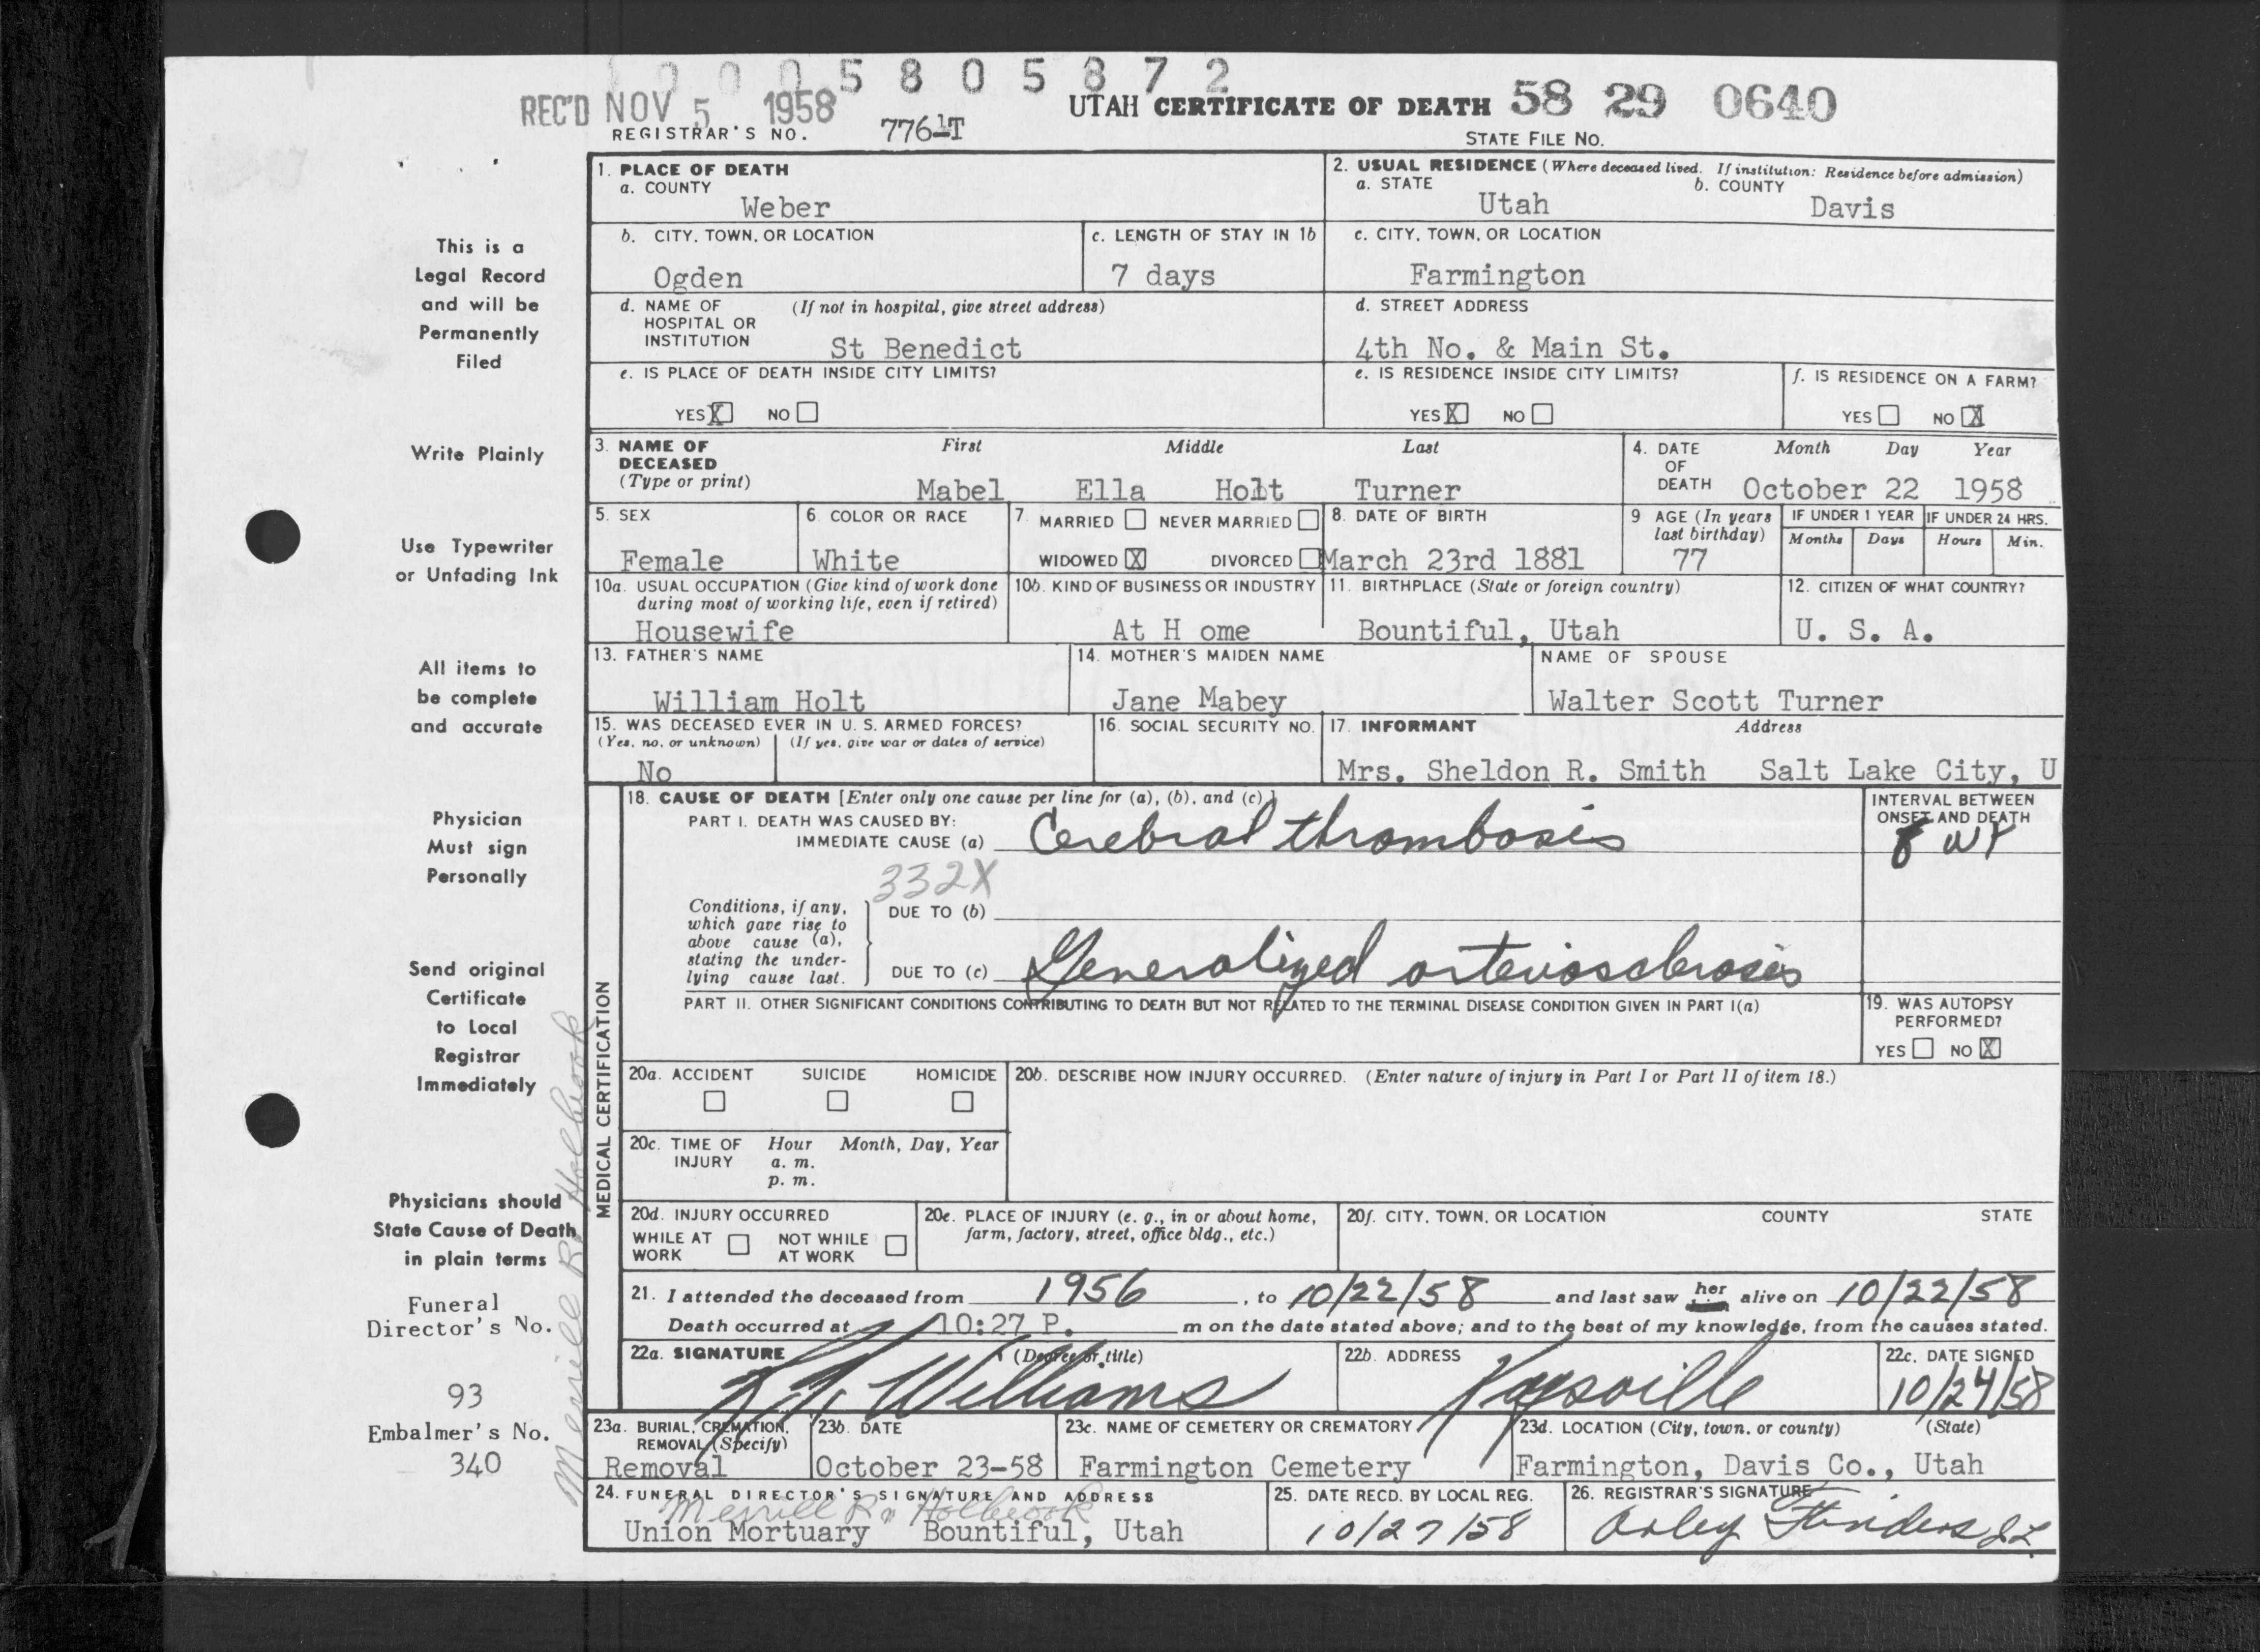 0 0 0 5 8 0 5 8 7 2
REC'D NOV 5 1958 UTAH CERTIFICATE OF DEATH 58 29 0640
REGISTRAR'S NO. 776-1T STATE FILE NO.
1. PLACE OF DEATH
a. COUNTY
Weber
2. USUAL RESIDENCE (Where deceased lived. If institution: Residence before admission)
a. STATE b. COUNTY
Utah Davis
b. CITY, TOWN, OR LOCATION
Ogden
c. LENGTH OF STAY IN 1b
7 days
c. CITY, TOWN, OR LOCATION
Farmington
d. NAME OF (If not in hospital, give street address)
HOSPITAL OR
INSTITUTION
St Benedict
d. STREET ADDRESS
4th No. & Main St.
e. IS PLACE OF DEATH INSIDE CITY LIMITS?
YES X NO
e. IS RESIDENCE INSIDE CITY LIMITS?
YES X NO
f. IS RESIDENCE ON A FARM?
YES NO X
3. NAME OF First Middle Last
DECEASED
(Type or print)
Mabel Ella Holt Turner
4. DATE Month Day Year
OF
DEATH October 22 1958
5. SEX
Female
6. COLOR OR RACE
White
7. MARRIED NEVER MARRIED
WIDOWED X DIVORCED
8. DATE OF BIRTH
March 23rd 1881
9 AGE (In years
last birthday)
77
IF UNDER 1 YEAR IF UNDER 24 HRS.
Months Days Hours Min.
10a. USUAL OCCUPATION (Give kind of work done
during most of working life, even if retired)
Housewife
10b. KIND OF BUSINESS OR INDUSTRY
At H ome
11. BIRTHPLACE (State or foreign country)
Bountiful, Utah
12. CITIZEN OF WHAT COUNTRY?
U. S. A.
13. FATHER'S NAME
William Holt
14. MOTHER'S MAIDEN NAME
Jane Mabey
NAME OF SPOUSE
Walter Scott Turner
15. WAS DECEASED EVER IN U. S. ARMED FORCES?
(Yes, no, or unknown) (If yes, give war or dates of service)
No
16. SOCIAL SECURITY NO.
17. INFORMANT Address
Mrs. Sheldon R. Smith Salt Lake City, U
MEDICAL CERTIFICATION
18. CAUSE OF DEATH [Enter only one cause per line for (a), (b), and (c)]
PART I. DEATH WAS CAUSED BY:
IMMEDIATE CAUSE (a) Cerebral thrombosis
INTERVAL BETWEEN
ONSET AND DEATH
332X
Conditions, if any,
which gave rise to
above cause (a),
stating the under-
lying cause last.
DUE TO (b)
DUE TO (c) Generalized arteriosclerosis
PART II. OTHER SIGNIFICANT CONDITIONS CONTRIBUTING TO DEATH BUT NOT RELATED TO THE TERMINAL DISEASE CONDITION GIVEN IN PART I(a)
19. WAS AUTOPSY
PERFORMED?
YES NO X
20a. ACCIDENT SUICIDE HOMICIDE
20b. DESCRIBE HOW INJURY OCCURRED. (Enter nature of injury in Part I or Part II of item 18.)
20c. TIME OF Hour Month, Day, Year
INJURY a. m.
p. m.
20d. INJURY OCCURRED
WHILE AT NOT WHILE
WORK AT WORK
20e. PLACE OF INJURY (e. g., in or about home,
farm, factory, street, office bldg., etc.)
20f. CITY, TOWN, OR LOCATION COUNTY STATE
21. I attended the deceased from 1956, to 10/22/58 and last saw her alive on 10/22/58
Death occurred at 10:27 P. m on the date stated above; and to the best of my knowledge, from the causes stated.
22a. SIGNATURE (Degree or title)
Williams
22b. ADDRESS
Kaysville
22c. DATE SIGNED
10/24/58
23a. BURIAL, CREMATION,
REMOVAL (Specify)
Removal
23b. DATE
October 23-58
23c. NAME OF CEMETERY OR CREMATORY
Farmington Cemetery
23d. LOCATION (City, town, or county) (State)
Farmington, Davis Co., Utah
24. FUNERAL DIRECTOR'S SIGNATURE AND ADDRESS
Merrill R. Holbrook
Union Mortuary Bountiful, Utah
25. DATE RECD. BY LOCAL REG.
10/27/58
26. REGISTRAR'S SIGNATURE
This is a
Legal Record
and will be
Permanently
Filed
Write Plainly
Use Typewriter
or Unfading Ink
All items to
be complete
and accurate
Physician
Must sign
Personally
Send original
Certificate
to Local
Registrar
Immediately
Physicians should
State Cause of Death
in plain terms
Funeral
Director's No.
93
Embalmer's No.
340
Merrill R. Holbrook